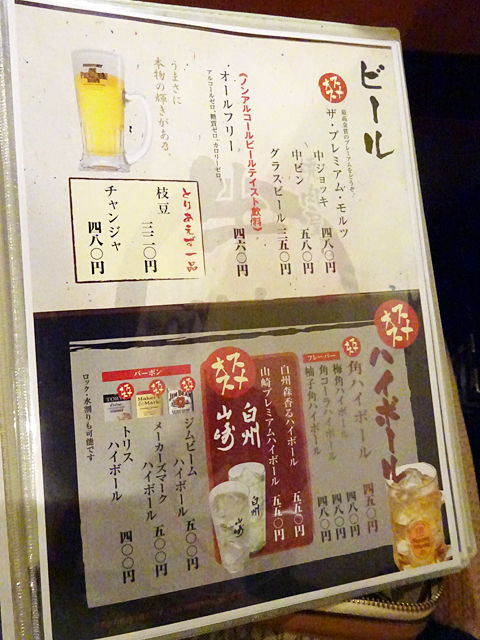 ビール
オススメ
最高金賞のプレミアムをどうぞ。
ザ・プレミアム・モルツ
中ジョッキ 四八〇円
中ビン 五八〇円
グラスビール 三五〇円
《ノンアルコールビールテイスト飲料》
オールフリー 四六〇円
アルコールゼロ、糖質ゼロ、カロリーゼロ。
うまさに
本物の輝きがある。
とりあえず一品
枝豆 三二〇円
チャンジャ 四八〇円
オススメ
ハイボール
角ハイボール 四五〇円
フレーバー
梅角ハイボール 四八〇円
角コーラハイボール 四八〇円
柚子角ハイボール 四八〇円
オススメ
白州
山崎
白州森香るハイボール 五五〇円
山崎プレミアムハイボール 五五〇円
白州
山崎
バーボン
JIM BEAM
Maker's Mark
TORYS
ジムビーム
ハイボール 五〇〇円
メーカーズマーク
ハイボール 五〇〇円
トリス
ハイボール 四〇〇円
ロック・水割りも可能です